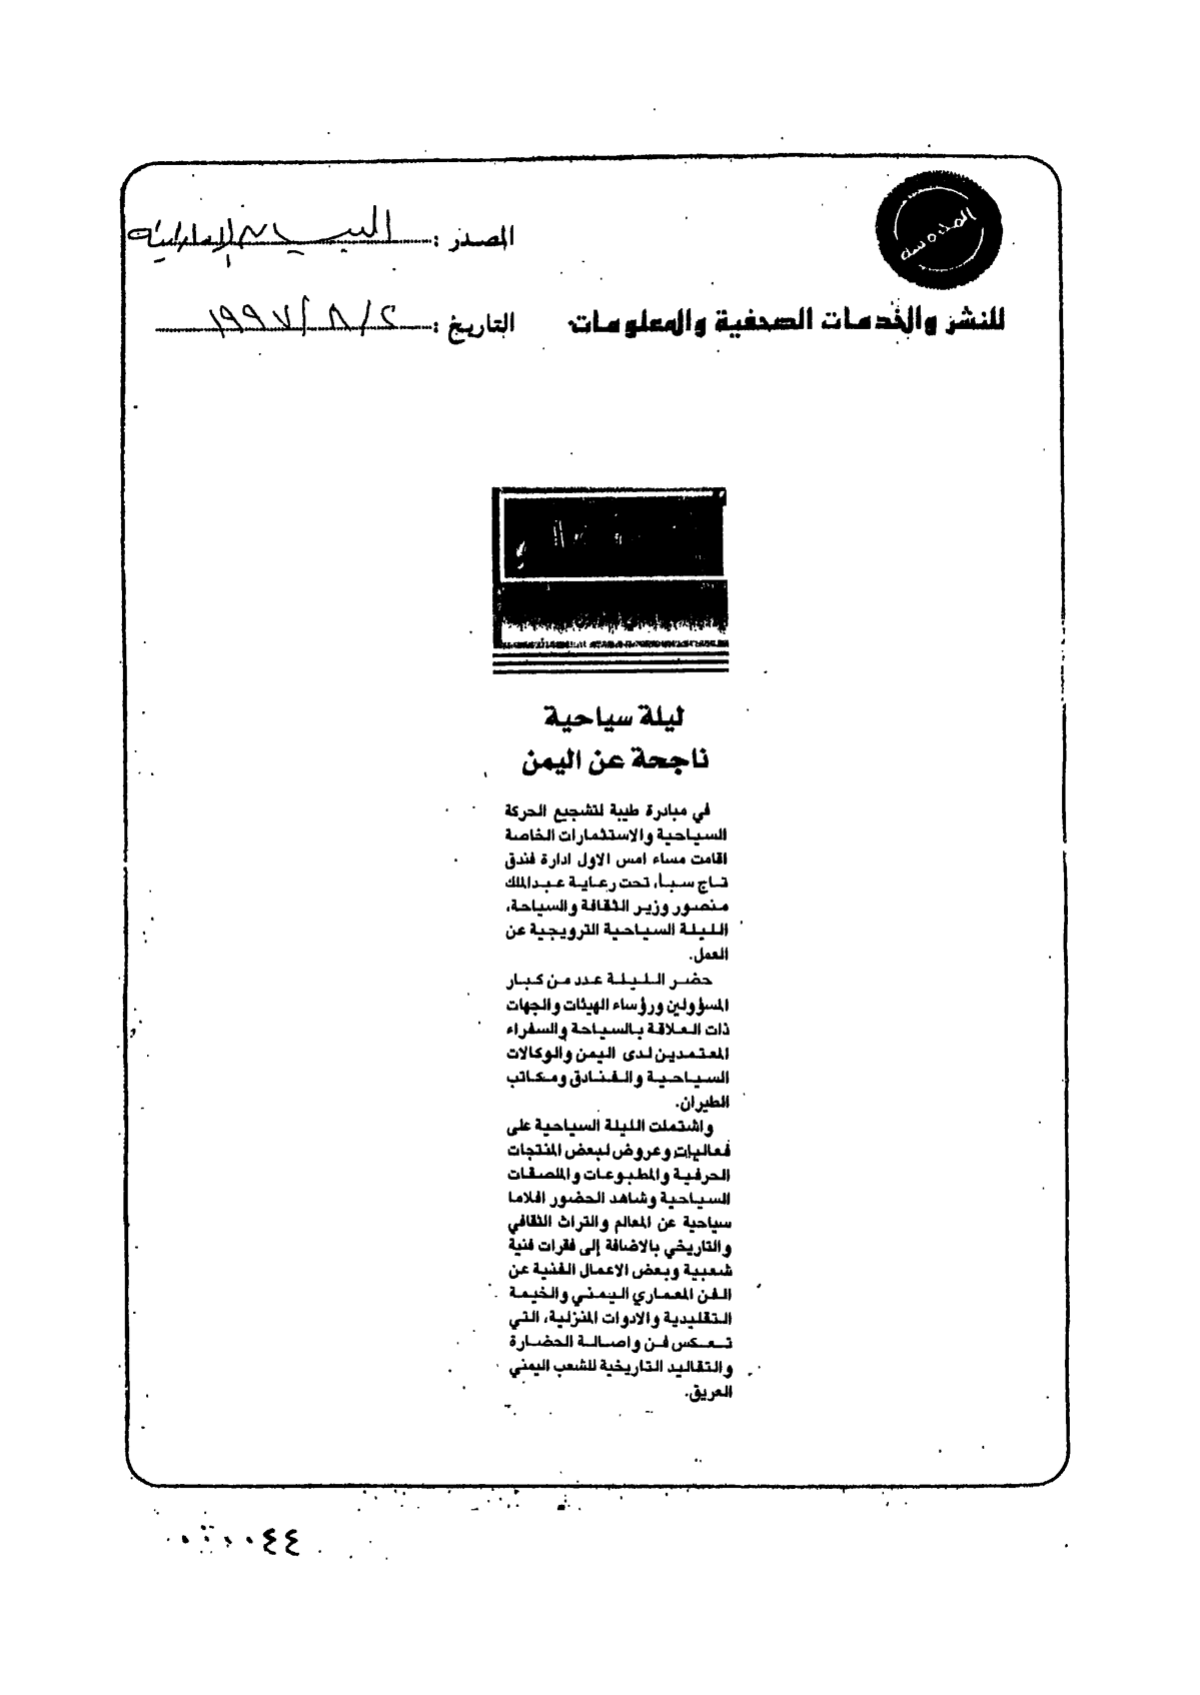 المصدر : البيان الإماراتية
للنشر والخدمات الصحفية والمعلومات
التاريخ : ٢ / ٨ / ١٩٩٧
ليلة سياحية
ناجحة عن اليمن
في مبادرة طيبة لتشجيع الحركة
السياحية والاستثمارات الخاصة
اقامت مساء امس الاول ادارة فندق
تاج سبأ، تحت رعاية عبدالملك
منصور وزير الثقافة والسياحة،
الليلة السياحية الترويجية عن
العمل.
حضر الليلة عدد من كبار
المسؤولين ورؤساء الهيئات والجهات
ذات العلاقة بالسياحة والسفراء
المعتمدين لدى اليمن والوكالات
السياحية والفنادق ومكاتب
الطيران.
واشتملت الليلة السياحية على
فعاليات وعروض لبعض المنتجات
الحرفية والمطبوعات والملصقات
السياحية وشاهد الحضور افلاما
سياحية عن المعالم والتراث الثقافي
والتاريخي بالاضافة إلى فقرات فنية
شعبية وبعض الاعمال الفنية عن
الفن المعماري اليمني والخيمة
التقليدية والادوات المنزلية، التي
تعكس فن واصالة الحضارة
والتقاليد التاريخية للشعب اليمني
العريق.
٤٤